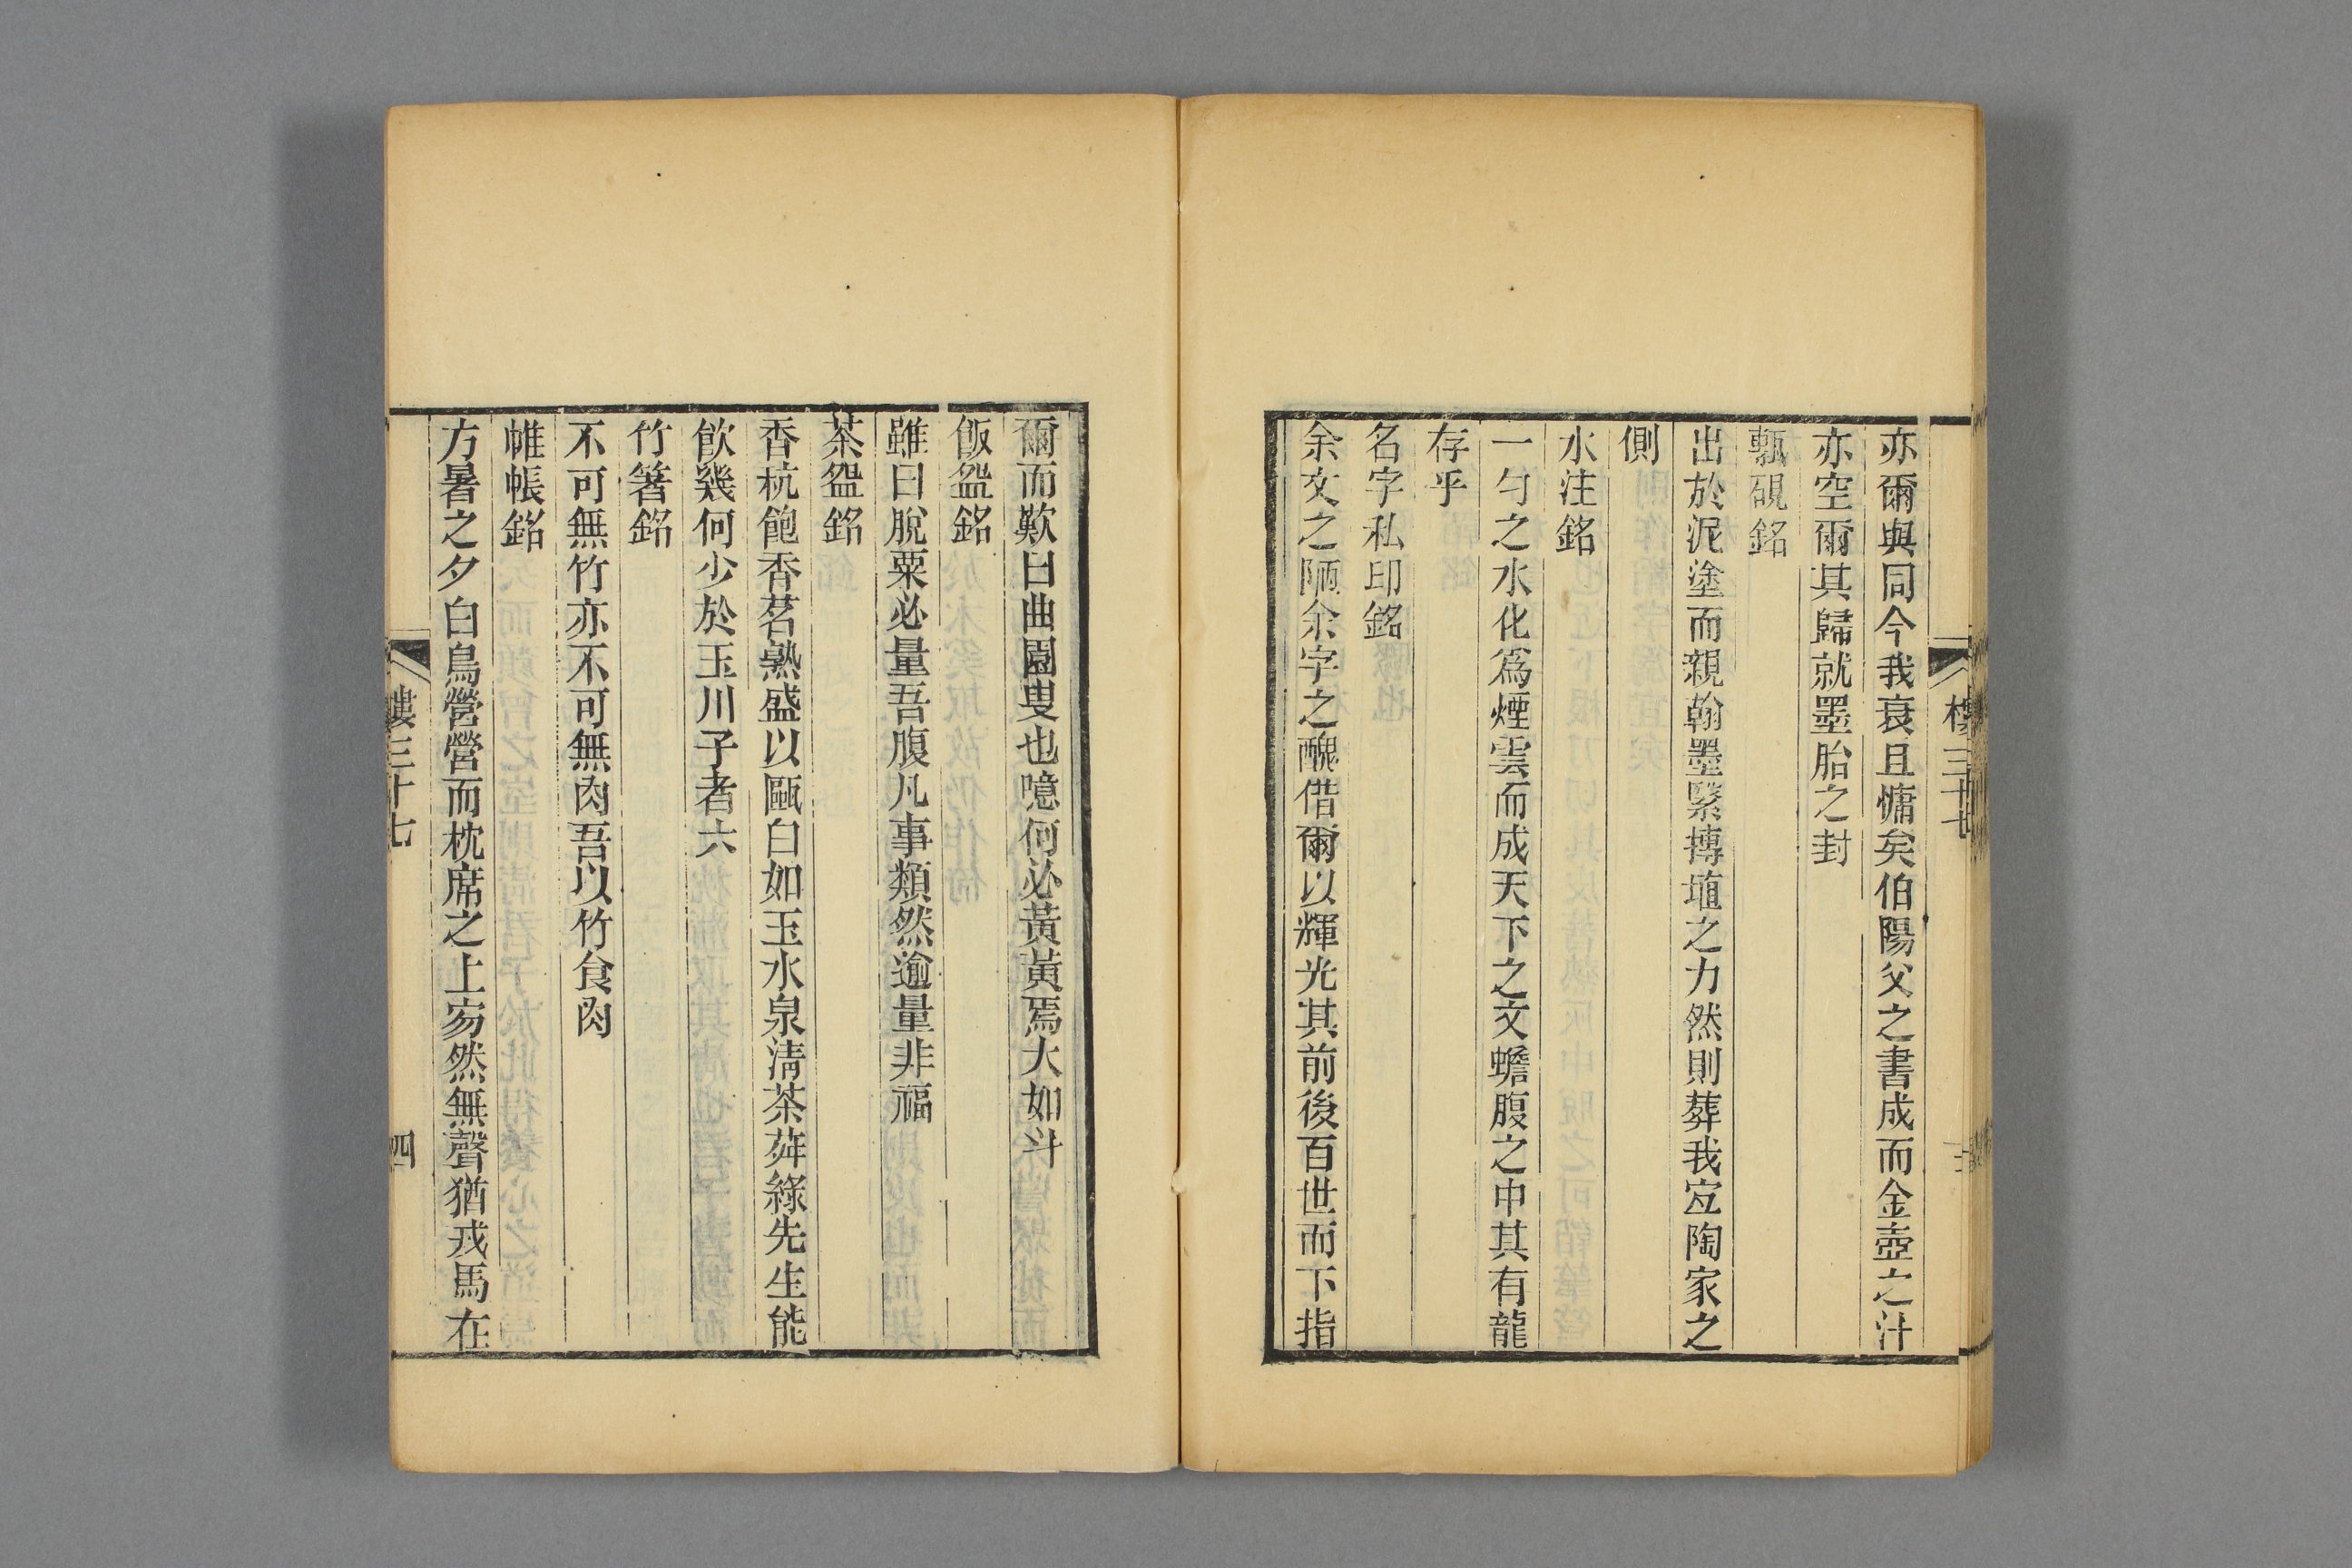 亦爾與同今我衰且慵矣伯陽父之書成而金壺之汁
亦空爾其歸就墨胎之封
甎硯銘
出於泥塗而親翰墨繄摶埴之力然則葬我宐陶家之
側
水注銘
一勺之水化爲煙雲而成天下之文蟾腹之中其有龍
存乎
名字私印銘
余文之陋余字之醜借爾以輝光其前後百世而下指
爾而歎曰曲園叟也噫何必黃黃焉大如斗
飯盌銘
雖曰脫粟必量吾腹凡事類然逾量非福
茶盌銘
香杭飽香茗熟盛以甌白如玉水泉淸茶荈綠先生能
飮幾何少於玉川子者六
竹箸銘
不可無竹亦不可無肉吾以竹食肉
帷帳銘
方暑之夕白鳥營營而枕席之上㝑然無聲猶戎馬在
樓三十七
四